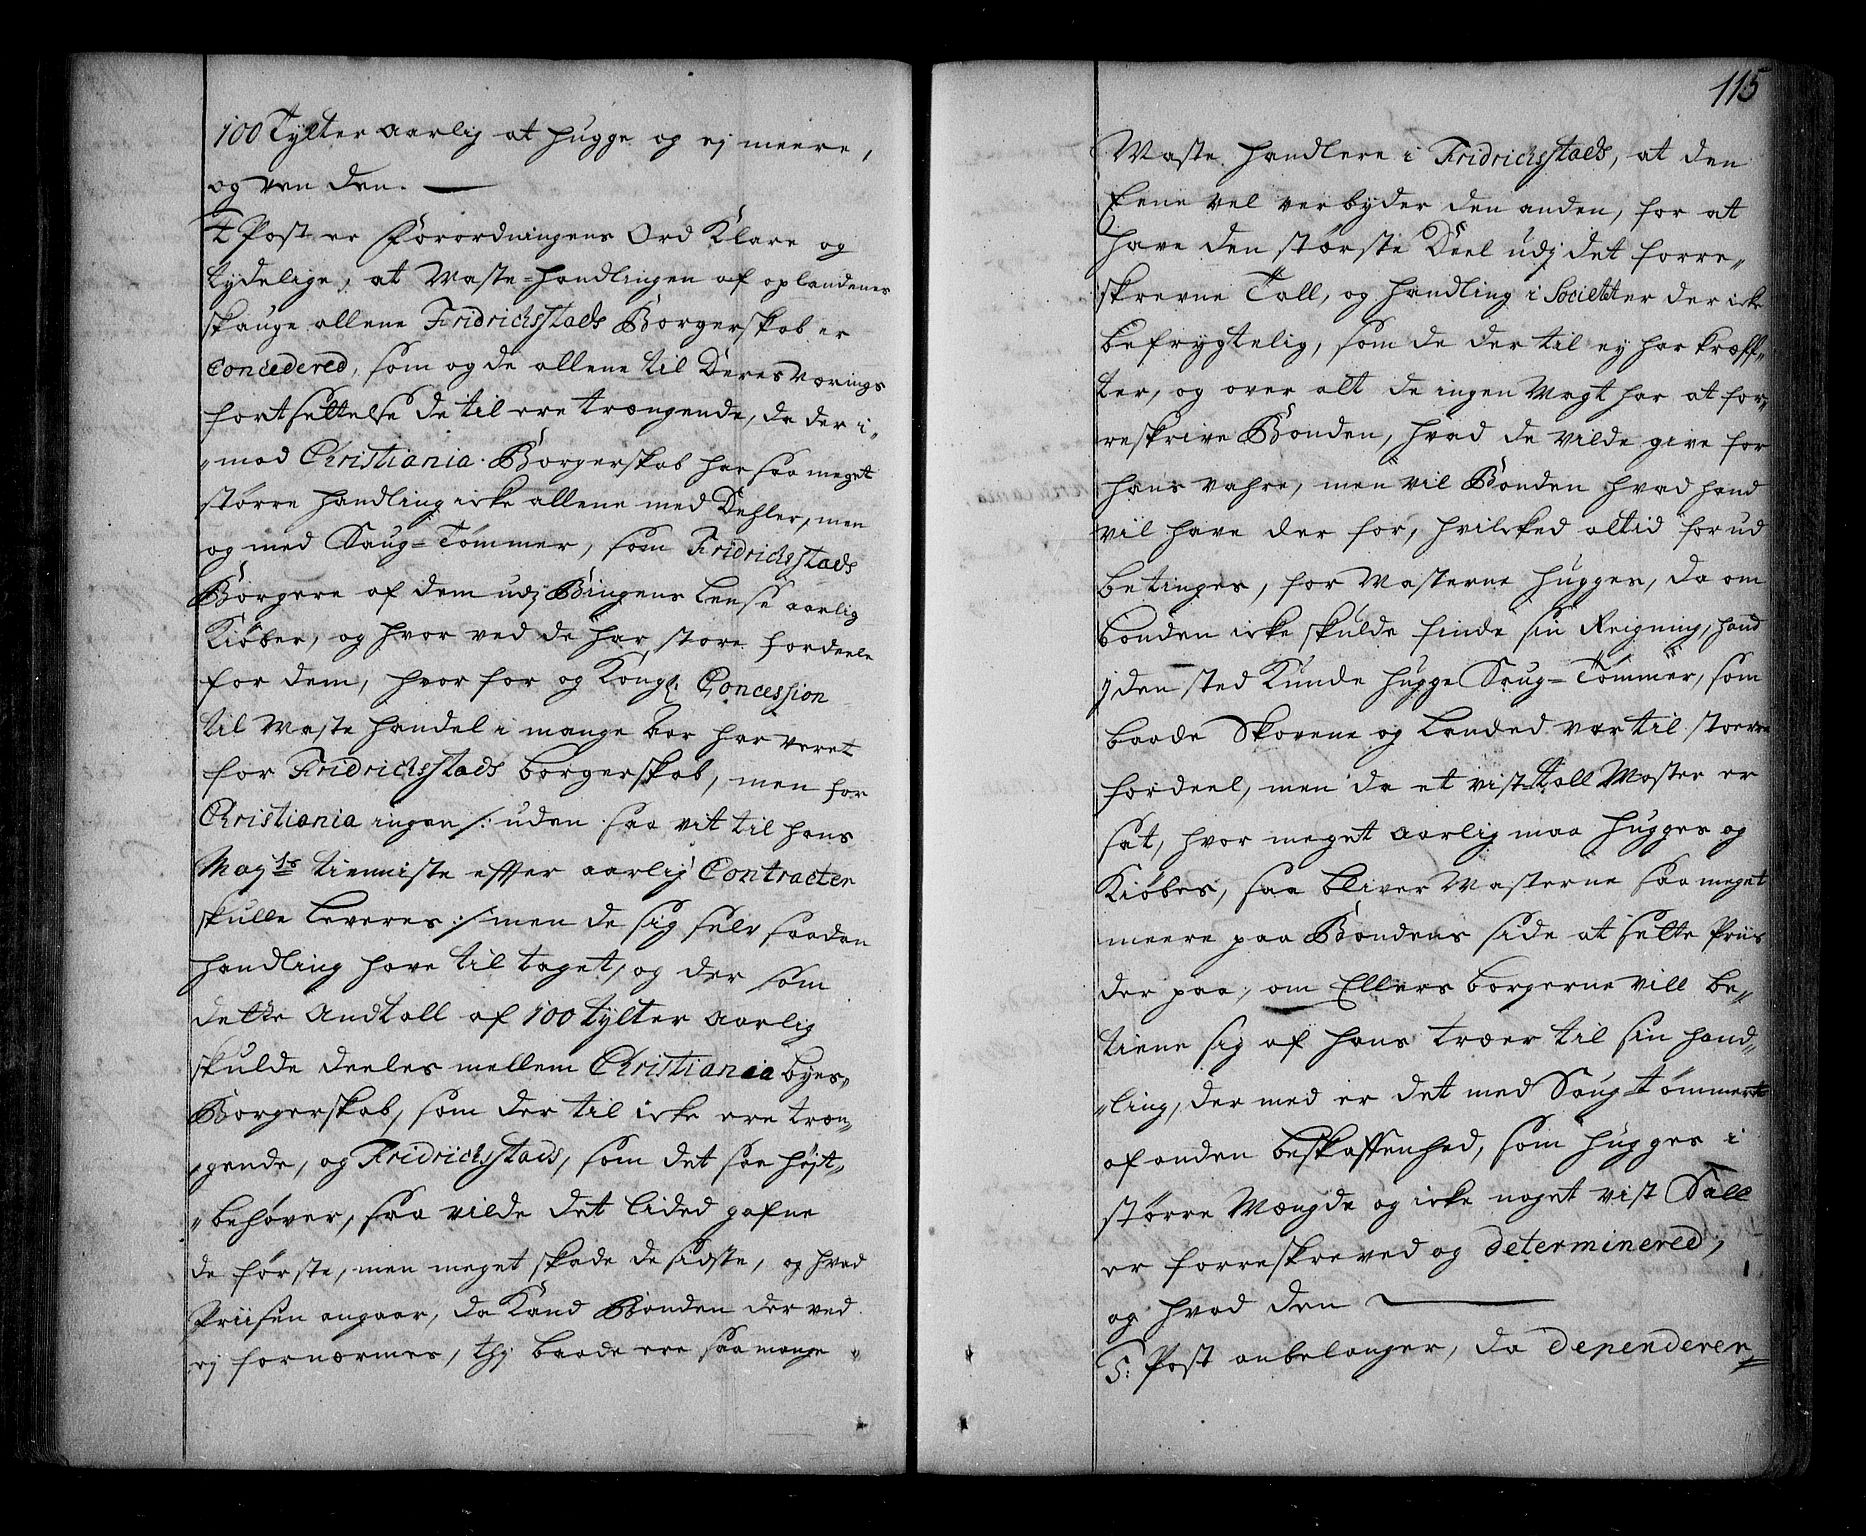 100 Tylter aarlig at hugge og ej meere,
og ven den.
4 Post er Forordningens Ord Klare og
tydelige, at Maste-Handlingen af oplandenes
skauge allene Fridrichsstads Borgerskab er
Concedered, som og de allene til Deres Nærings
fortsettelse de til ere trængende, da der i„
„mod Christiania Borgerskab har saa meget
større handling icke allene med Dehler, men
og med Saug-Tømmer, som Fridrichsstads
Borgere af dem udj Bingens Lense aarlig
Kiøber, og hvor ved de har store fordeele
for dem, hvor for og Kongl. Concession
til Maste handel i mange Aar har veret
for Fridrichsstads borgerskab, men for
Christiania ingen /: uden saa vit til hans
May.ts tienniste effter aarlig Contracter
skulle leveres :/ men de sig selv saadan
handling have til taget, og der som
dette Andtall af 100 tylter aarlig
skulde deeles mellem Christiania byes„
Borgerskab, som der til icke ere træn„
gende, og Fridrichstads, som det saa høyt„
„behøver, saa vilde det lided gafne
de første, men meget skade de sidste, og hvad
Priisen angaar, da Kand Bonden der ved
ej fornærmes, thj baade ere saa mange
115
Maste handlere i Fridrichsstads, at den
Eene vel verbyder den anden, for at
have den største Deel udj det forre„
skrevne Tall, og handling i Societeter der icke
befrygtelig, som de der til ey har kræff„
ter, og over alt de ingen Magt har at for„
reskrive Bonden, hvad de vilde give for
hans vahre, men vil Bonden hvad hand
vil have der for, hvilcked altid forud
betinges, før Masterne hugges, da om
bonden icke skulde finde sin Reigning, hand
j den sted Kunde hugge Saug-Tømmer, som
baade Skovene og Landed var til større
fordeel, men da et vist tall Master er
sat, hvor meget aarlig maa hugges og
Kiøbes, saa bliver Masterne saa meget
meere paa Bondens side at sette Priis
der paa, om Ellers borgerne vill be„
tiene sig af hans træer til sin hand„
„ling, der med er det med Saug-tømmeret
af anden beskaffenhed, som hugges i
større Mængde og icke noget vist Tall
er forreskreved og determinered,
og hvad den
5: Post anbelanger, da dependerer